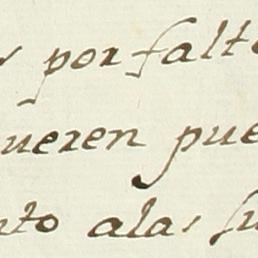 por falt
ueren pue
nto alas su